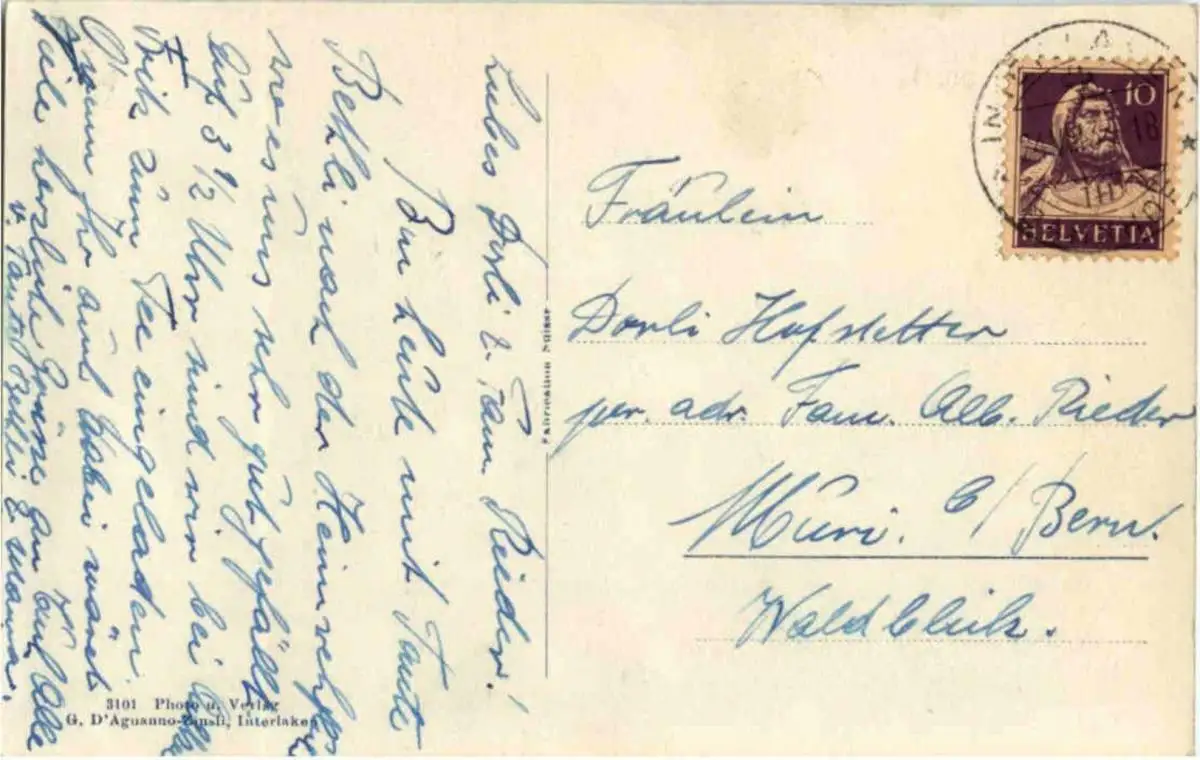 Liebes Dorli & Fam. Rieder!
Bin heute mit Tante
Bethli nach der Heimwehfluh
wo es uns sehr gut gefällt
Auf 3 1/2 Uhr sind wir bei
Fritz zum Tee eingeladen.
Ihr auch dabei wäret
Viele herzliche Grüsse an Euch Alle
v. Tante Bethli & Mama.
3101 Photo u. Verlag
G. D'Aguanno-Zinsli, Interlaken
Fabrication Suisse
INTERLAKEN
18
10
HELVETIA
Fräulein
Dorli Hofstetter
per. adr. Fam. Alb. Rieder
Muri. b/Bern.
Waldblick.